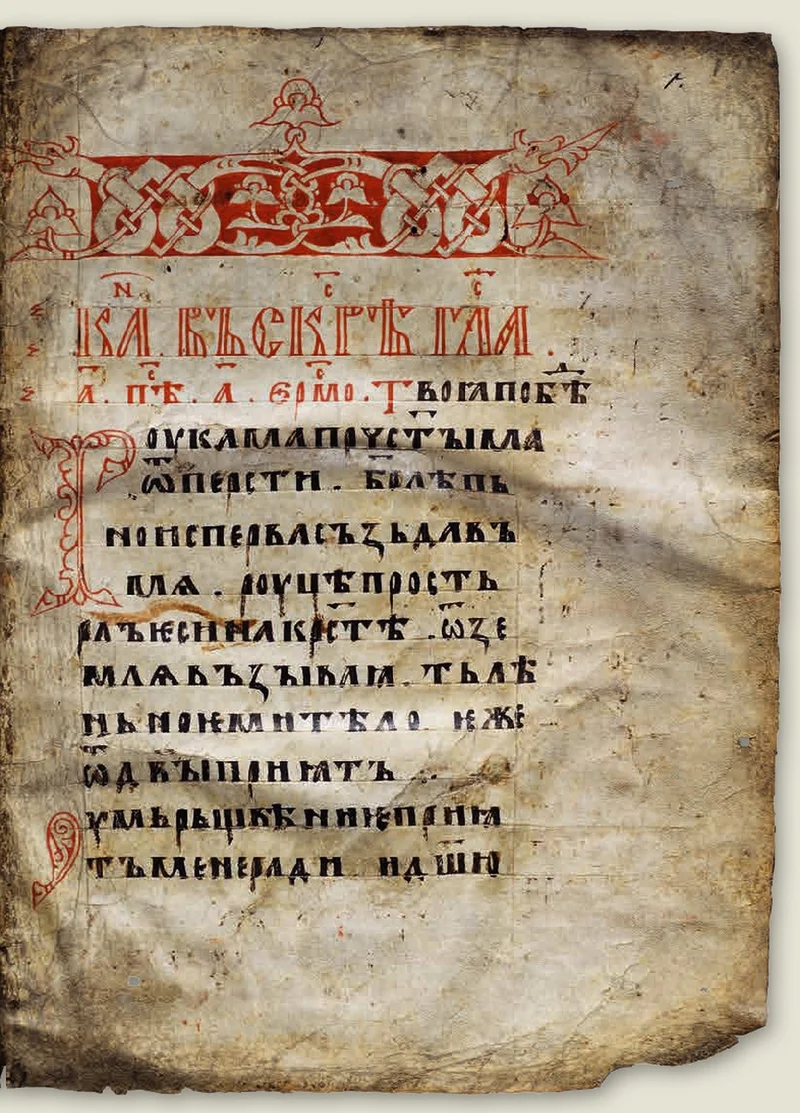 КАⷩ҇. ВЪСКРЬⷭ҇ ГЛАⷭ҇.
А҃. ПѢⷭ҇. А҃. ЄРМОⷭ҇. ТВОꙖ ПОБѢⷣ
РОУКАМА ПРѸСТ҃ЫМА
Ѿ ПЕРСТИ . Б҃ОЛѢПЬ
НО ИСПЕРВА СЪЗЬДАВЪ
МѦ . РОУЦѢ ПРОСТЬ
РЛЪ ѤСИ НА КРСТ҃Ѣ . Ѿ ЗЕ
МЛѦ ВЪЗЫВАꙖ . ТЬЛѢ
НЬНОѤ МИ ТѢЛО ѤЖЕ
Ѿ ДВ҃Ы ПРИꙖТЪ ..
ѸМЬРЬЩВѢНИѤ ПРИꙖ
ТЪ МЕНЕ РАДИ И ДШ҃Ю